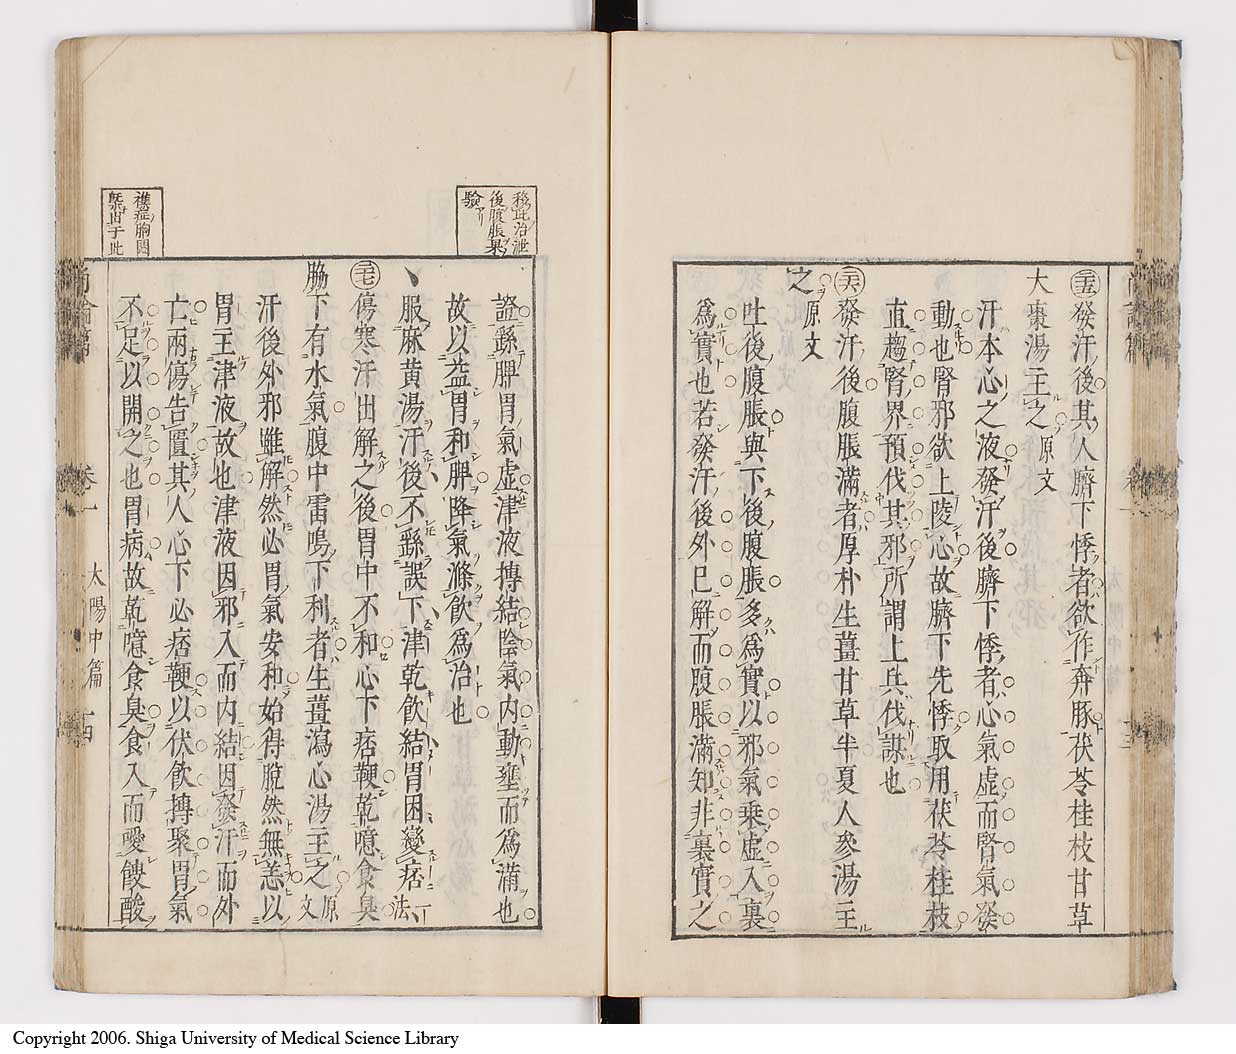 ㊁五發汗後其人臍下悸者欲作奔豚茯苓桂枝甘草
大棗湯主之原文
汗本心之液發汗後臍下悸者心氣虛而腎氣發
動也腎邪欲上陵心故臍下先悸取用茯苓桂枝
直趨腎界預伐其邪所謂上兵伐謀也
發汗後腹脹滿者厚朴生薑甘草半夏人參湯主
之原文
吐後腹脹與下後腹脹多爲實以邪氣乘虛入裏
爲實也若發汗後外已解而腹脹滿知非裏實之
移此治泄
後腹脹果
驗
證繇脾胃氣虛津液摶結陰氣內動壅而爲滿也
故以益胃和脾降氣滌飮爲治也
服麻黄湯汗後不繇誤下津乾飮結胃困變痞法
傷寒汗出解之後胃中不和心下痞鞕乾噫食臭
脇下有水氣腹中雷鳴下利者生薑瀉心湯主之原文
汗後外邪雖解然必胃氣安和始得脫然無恙以
胃主津液故也津液因邪入而内結因發汗而外
亡兩傷告匱其人心下必痞鞕以伏飮摶聚胃氣
不足以開之也胃病故乾噫食臭食入而噯餿酸
雜症胸悶
槩由于此
尚論篇
卷一
太陽中篇
十四
Copyright 2006. Shiga University of Medical Science Library